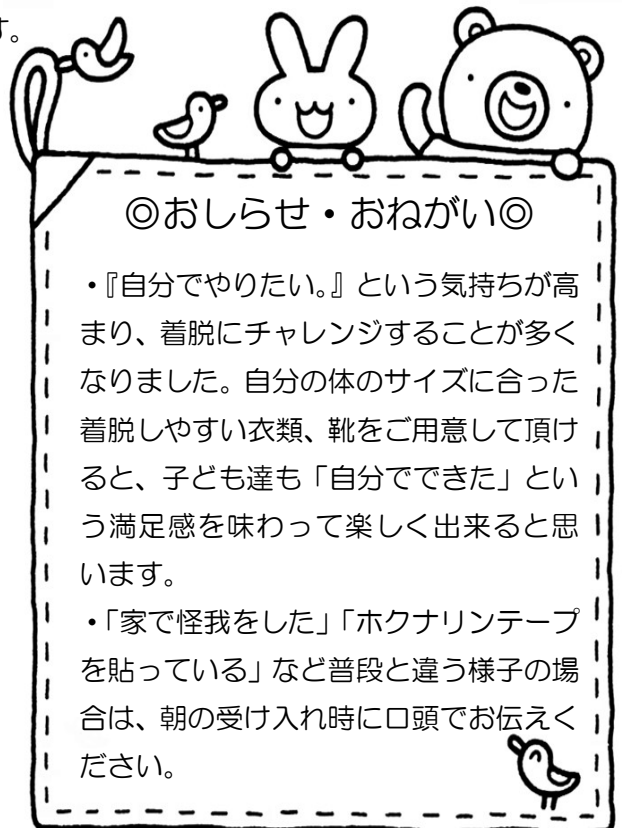 す。
◎おしらせ・おねがい◎
・『自分でやりたい。』という気持ちが高
まり、着脱にチャレンジすることが多く
なりました。自分の体のサイズに合った
着脱しやすい衣類、靴をご用意して頂け
ると、子ども達も「自分でできた」とい
う満足感を味わって楽しく出来ると思
います。
・「家で怪我をした」「ホクナリンテープ
を貼っている」など普段と違う様子の場
合は、朝の受け入れ時に口頭でお伝えく
ださい。